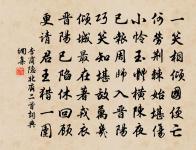 一笑相傾國便亡
何勞荊棘始堪傷
小憐玉體橫陳夜
已報周師入晉陽
巧笑知堪敵萬幾
傾城最在著戎衣
晉陽已陷休回顧
更請君王獵一圍
李商隱北齊二首詞典
網集